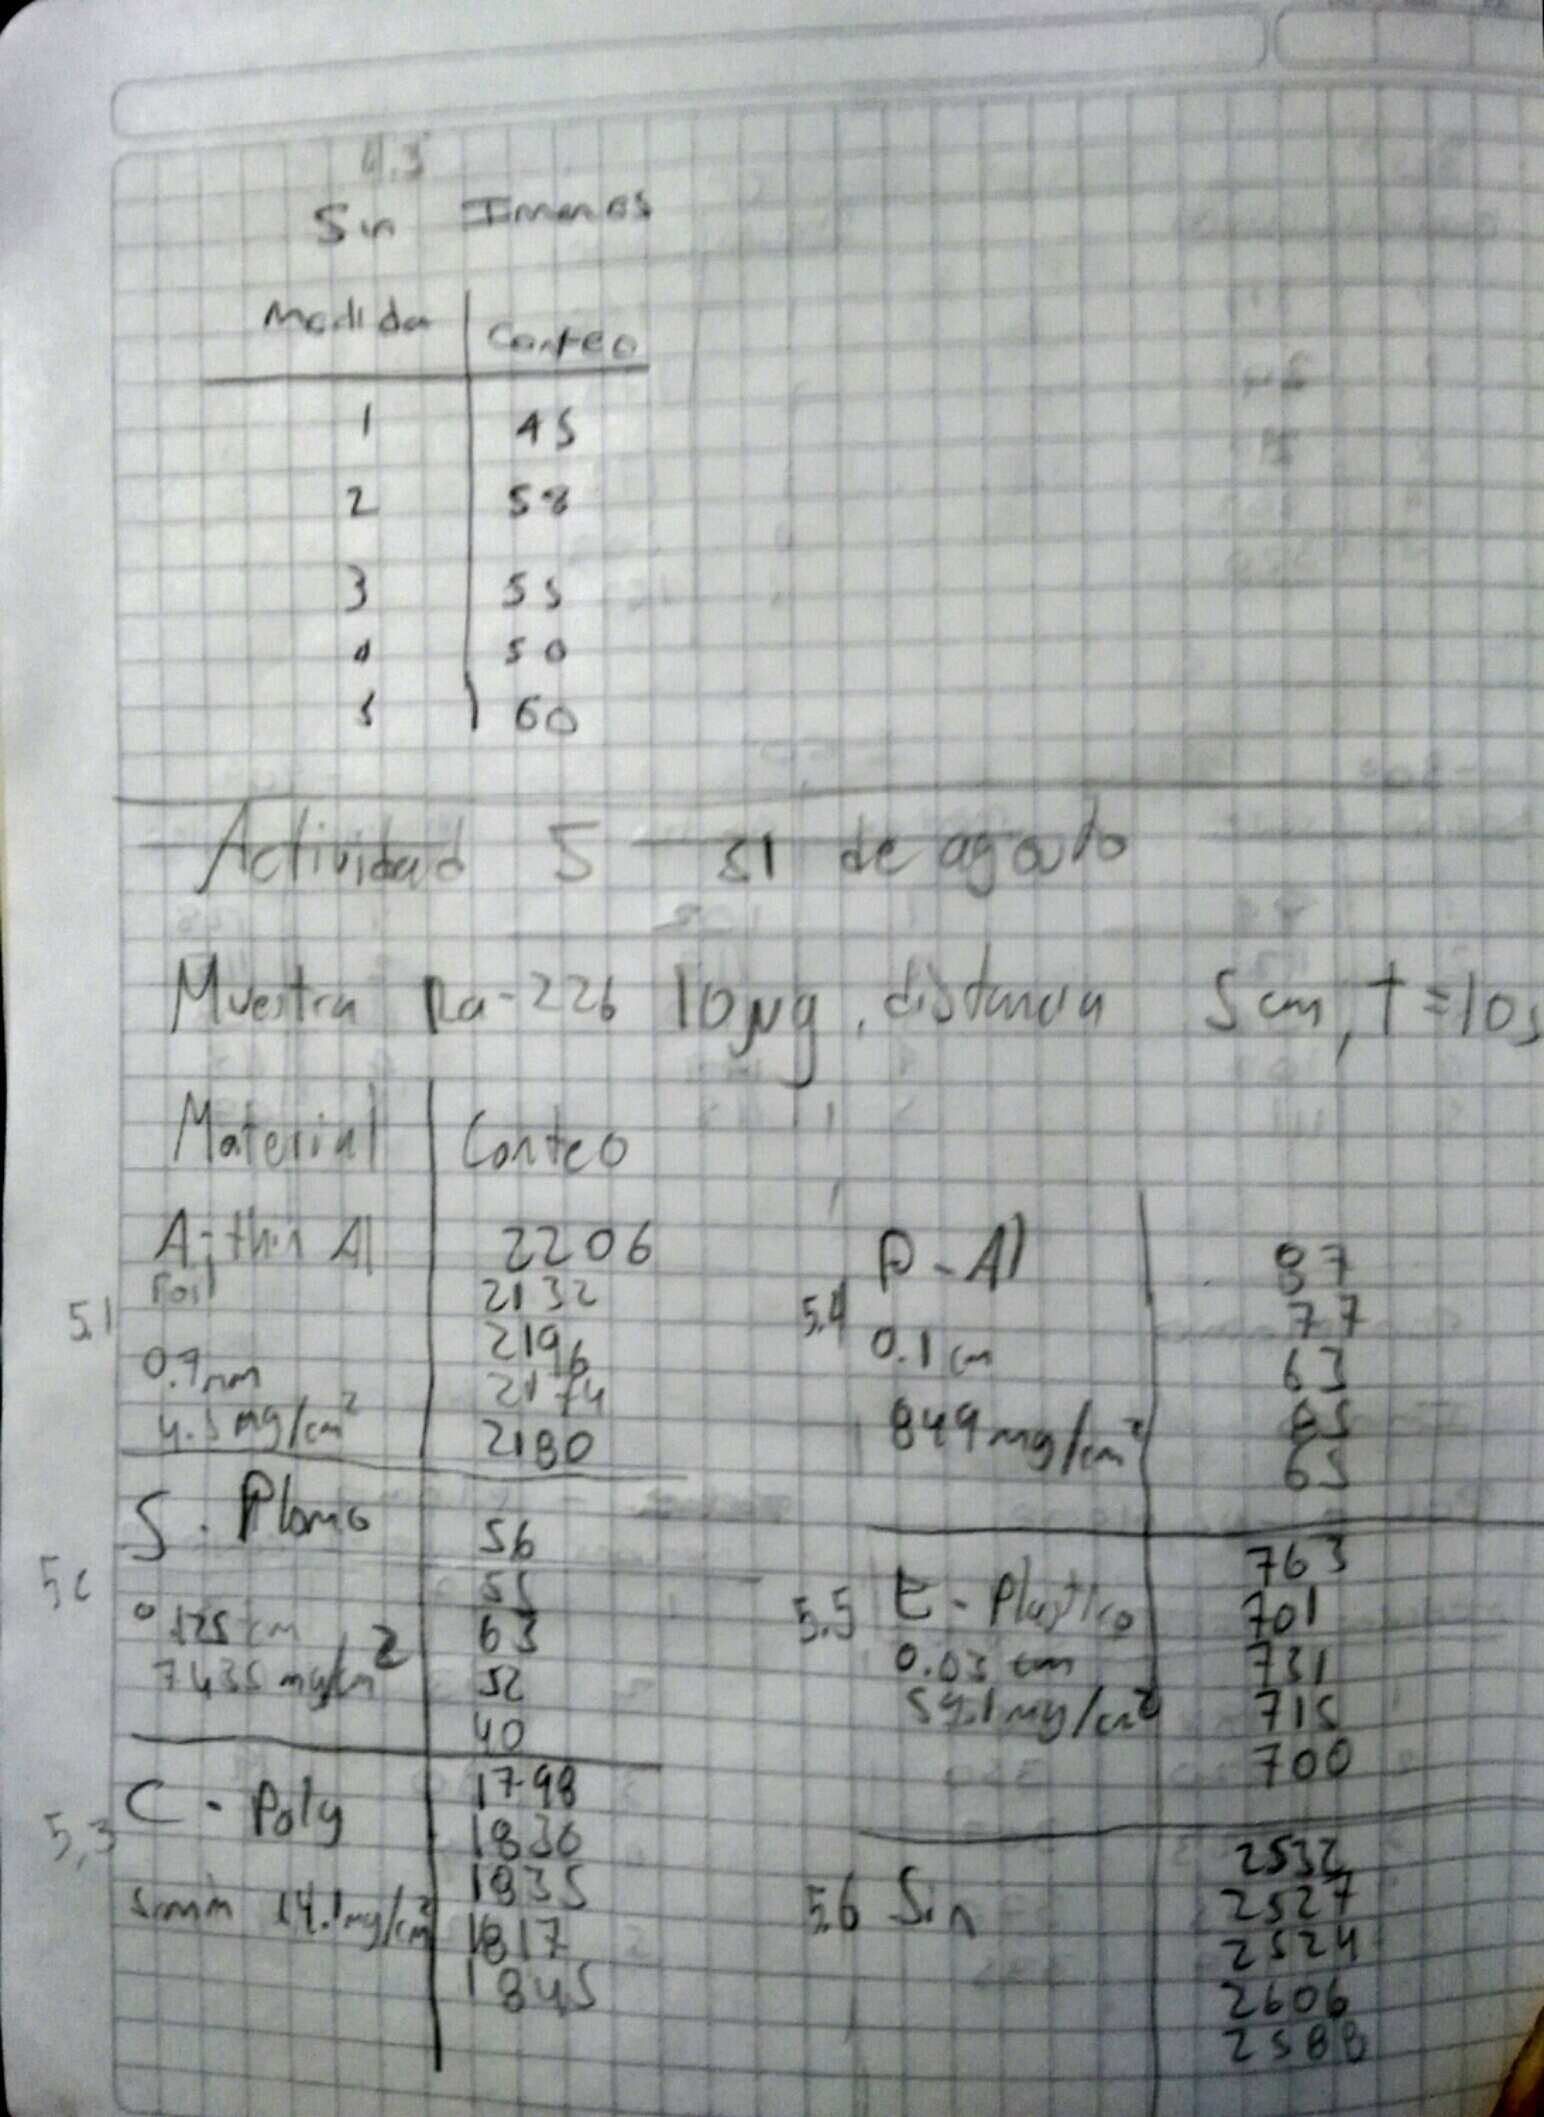 4.3
Sin Imanes
Medida Conteo
1 45
2 58
3 55
4 50
5 60
Actividad 5 — 31 de agosto
Muestra Ra-226 10μg, distancia 5cm, t=10s
Material Conteo
5.1
A-thin Al
Foil
0.7mm
4.5mg/cm²
2206
2132
2196
2174
2180
S. Plomo
0.125 cm
7435 mg/cm²
56
55
63
52
40
5,3
C - Poly
14.1mg/cm²
1798
1830
1835
1817
1845
5.4
D - Al
0.1cm
849mg/cm²
77
63
65
5.5
E - Plastico
0.03 cm
59.1mg/cm²
763
701
731
715
700
5.6 Sin
2532
2527
2524
2606
2588